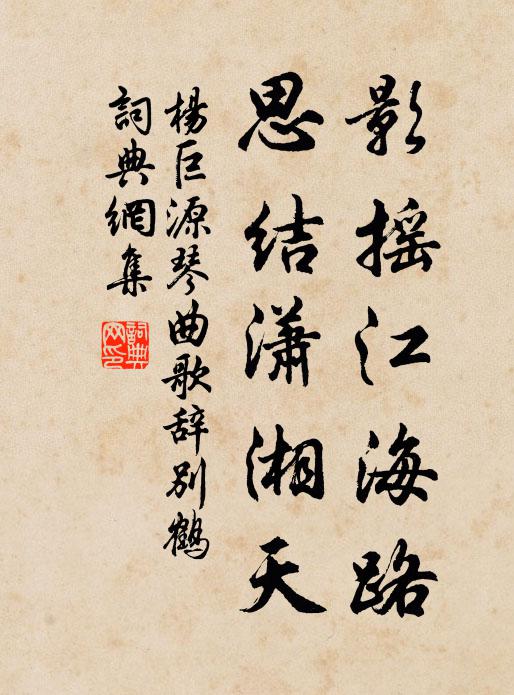 影摇江海路
思结潇湘天
楊巨源琴曲歌辞别鶴
詞典網集
詞典网印